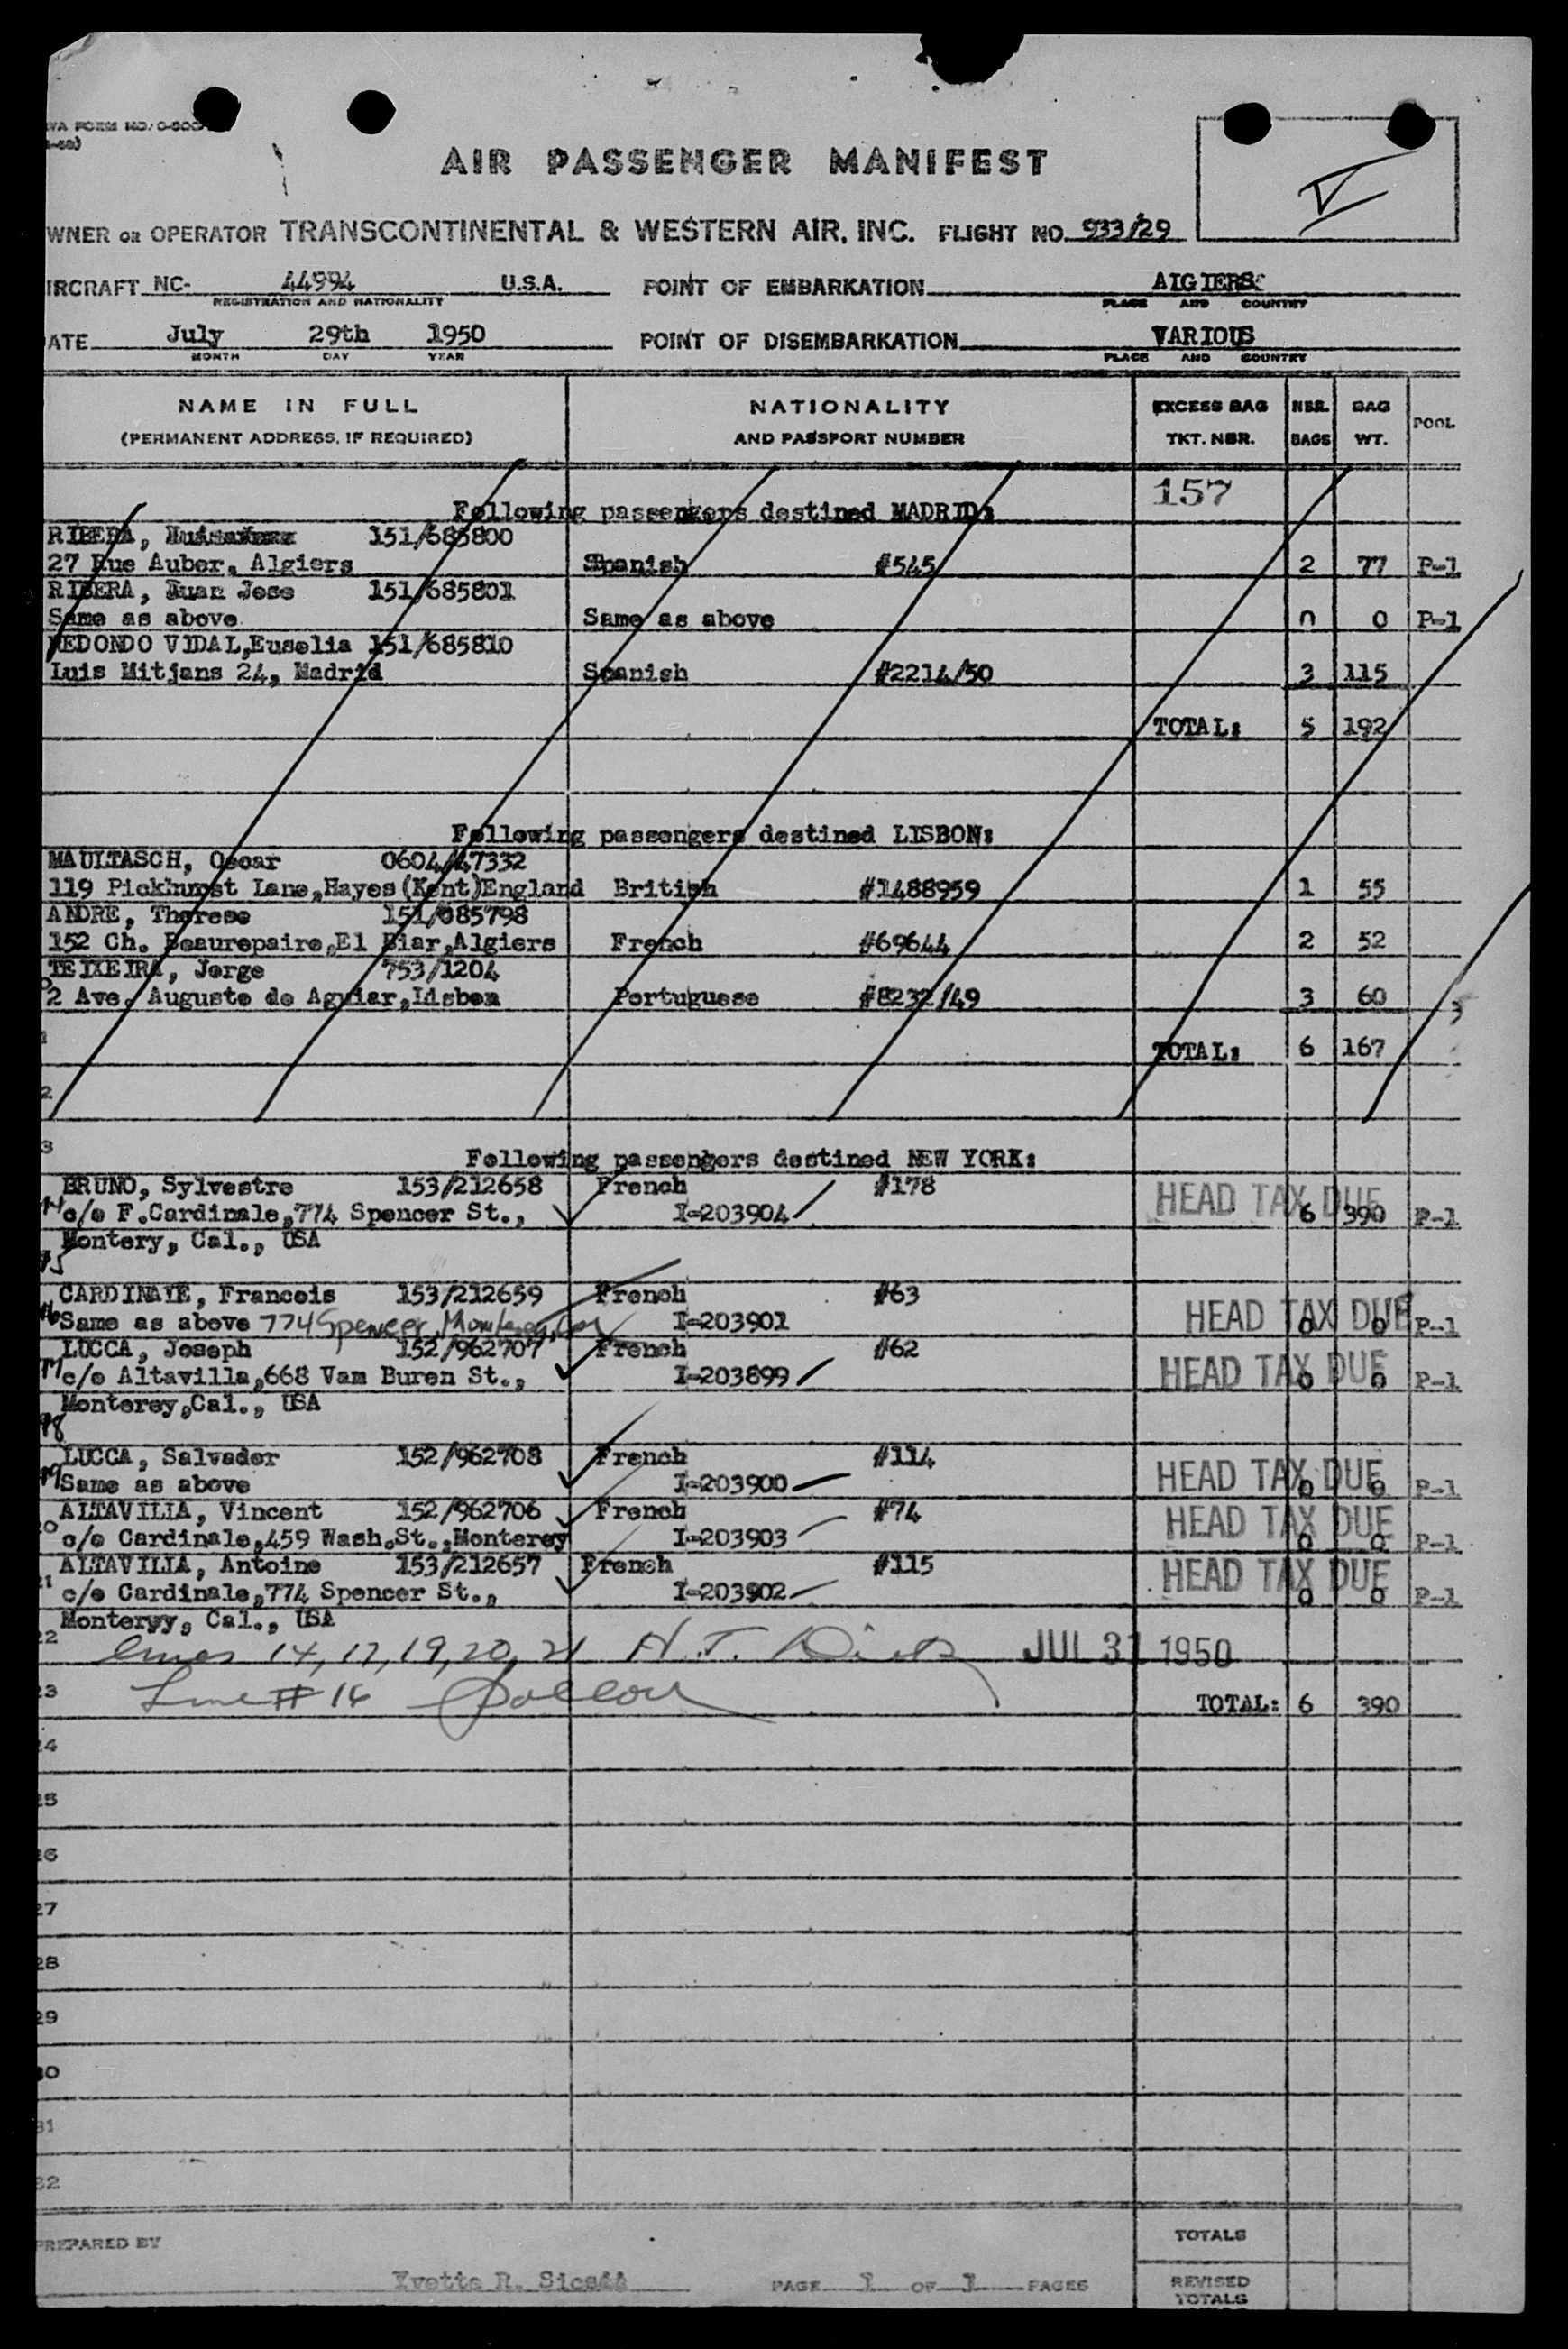 WA FORM NO. O-500
AIR PASSENGER MANIFEST
WNER OR OPERATOR TRANSCONTINENTAL & WESTERN AIR, INC. FLIGHT NO. 933/29
IRCRAFT NC- 44994 U.S.A. POINT OF EMBARKATION ALGIERS
REGISTRATION AND NATIONALITY PLACE AND COUNTRY
ATE July 29th 1950 POINT OF DISEMBARKATION VARIOUS
MONTH DAY YEAR PLACE AND COUNTRY
NAME IN FULL NATIONALITY EXCESS BAG NBR. BAG POOL
(PERMANENT ADDRESS, IF REQUIRED) AND PASSPORT NUMBER TKT. NBR. BAGS WT.
157
Following passengers destined MADRID:
RIBERA, 151/685800
27 Rue Auber, Algiers Spanish #545 2 77 P-1
RIBERA, Juan Jose 151/685801
Same as above Same as above 0 0 P-1
REDONDO VIDAL,Euselia 151/685810
Luis Mitjans 24, Madrid Spanish #2214/50 3 115
TOTAL: 5 192
Following passengers destined LISBON:
MAULTASCH, Oscar 0604/47332
119 Pickhurst Lane,Hayes(Kent)England British #1488959 1 55
ANDRE, Therese 151/685798
152 Ch. Beaurepaire,El Biar,Algiers French #69644 2 52
TEIXEIRA, Jorge 753/1204
2 Ave. Auguste de Aguiar,Lisbon Portuguese #8232/49 3 60
TOTAL: 6 167
2
3 Following passengers destined NEW YORK:
BRUNO, Sylvestre 153/212658 French #178
14 c/o F.Cardinale,774 Spencer St., I-203904 HEAD TAX DUE 6 390 P-1
Montery, Cal., USA
15
CARDINALE, Francois 153/212659 French #63
16 Same as above 774 Spencer, Monterey, Cal I-203901 HEAD TAX DUE 0 0 P-1
LUCCA, Joseph 152/962707 French #62
17 c/o Altavilla,668 Van Buren St., I-203899 HEAD TAX DUE 0 0 P-1
Monterey,Cal., USA
18
LUCCA, Salvador 152/962708 French #114
19 Same as above I-203900 HEAD TAX DUE 0 0 P-1
ALTAVILLA, Vincent 152/962706 French #74
20 c/o Cardinale,459 Wash.St.,Monterey I-203903 HEAD TAX DUE 0 0 P-1
ALTAVILLA, Antoine 153/212657 French #115
21 c/o Cardinale,774 Spencer St., I-203902 HEAD TAX DUE 0 0 P-1
Monteryy, Cal., USA
22 Lines 14, 17, 19, 20, 21 H. T. JUL 31 1950
23 Line # 16 TOTAL: 6 390
24
25
26
27
28
29
30
31
32
PREPARED BY TOTALS
Yvette R. PAGE 1 OF 1 PAGES REVISED
TOTALS